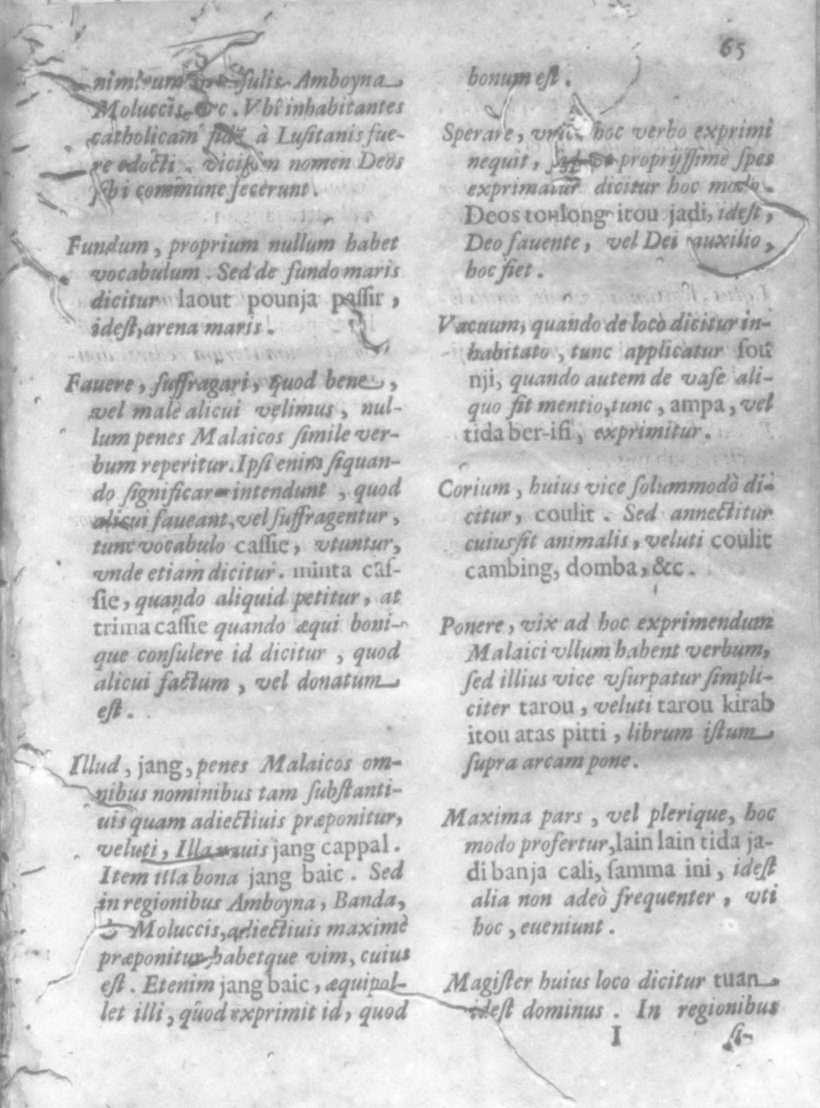 65
nimirum Insulis Amboyna
Moluccis, &c. Vbi inhabitantes
catholicam fidē à Lusitanis fue-
re edocti. dictum nomen Deos
sibi commune fecerunt.
Fundum, proprium nullum habet
vocabulum. Sed de fundo maris
dicitur laout pounja passir,
idest, arena maris.
Fauere, suffragari, quod bene,
vel male alicui velimus, nul-
lum penes Malaicos simile ver-
bum reperitur. Ipsi enim siquan-
do significare intendunt, quod
alicui faueant, vel suffragentur,
tunc vocabulo cassie, vtuntur,
vnde etiam dicitur. minta cas-
sie, quando aliquid petitur, at
trima cassie quando æqui boni-
que consulere id dicitur, quod
alicui factum, vel donatum
est.
Illud, jang, penes Malaicos om-
nibus nominibus tam substanti-
uis quam adiectiuis præponitur,
veluti, Illa nauis jang cappal.
Item illa bona jang baic. Sed
in regionibus Amboyna, Banda,
& Moluccis, adiectiuis maximè
præponitur habetque vim, cuius
est. Etenim jang baic, æquipol-
let illi, quod exprimit id, quod
bonum est.
Sperare, vnico hoc verbo exprimi
nequit, proprijssime spes
exprimatur dicitur hoc modo.
Deos tonlong itou jadi, idest,
Deo fauente, vel Dei auxilio,
hoc fiet.
Vacuum, quando de locò dicitur in-
habitato, tunc applicatur sou
nji, quando autem de vase ali-
quo fit mentio, tunc, ampa, vel
tida ber-isi, exprimitur.
Corium, huius vice solummodò di-
citur, coulit. Sed annectitur
cuius sit animalis, veluti coulit
cambing, domba, &c.
Ponere, vix ad hoc exprimendum
Malaici vllum habent verbum,
sed illius vice vsurpatur simpli-
citer tarou, veluti tarou kirab
itou atas pitti, librum istum
supra arcam pone.
Maxima pars, vel plerique, hoc
modo profertur, lain lain tida ja-
di banja cali, samma ini, idest
alia non adeò frequenter, vti
hoc, eueniunt.
Magister huius loco dicitur tuan
idest dominus. In regionibus
I
si-